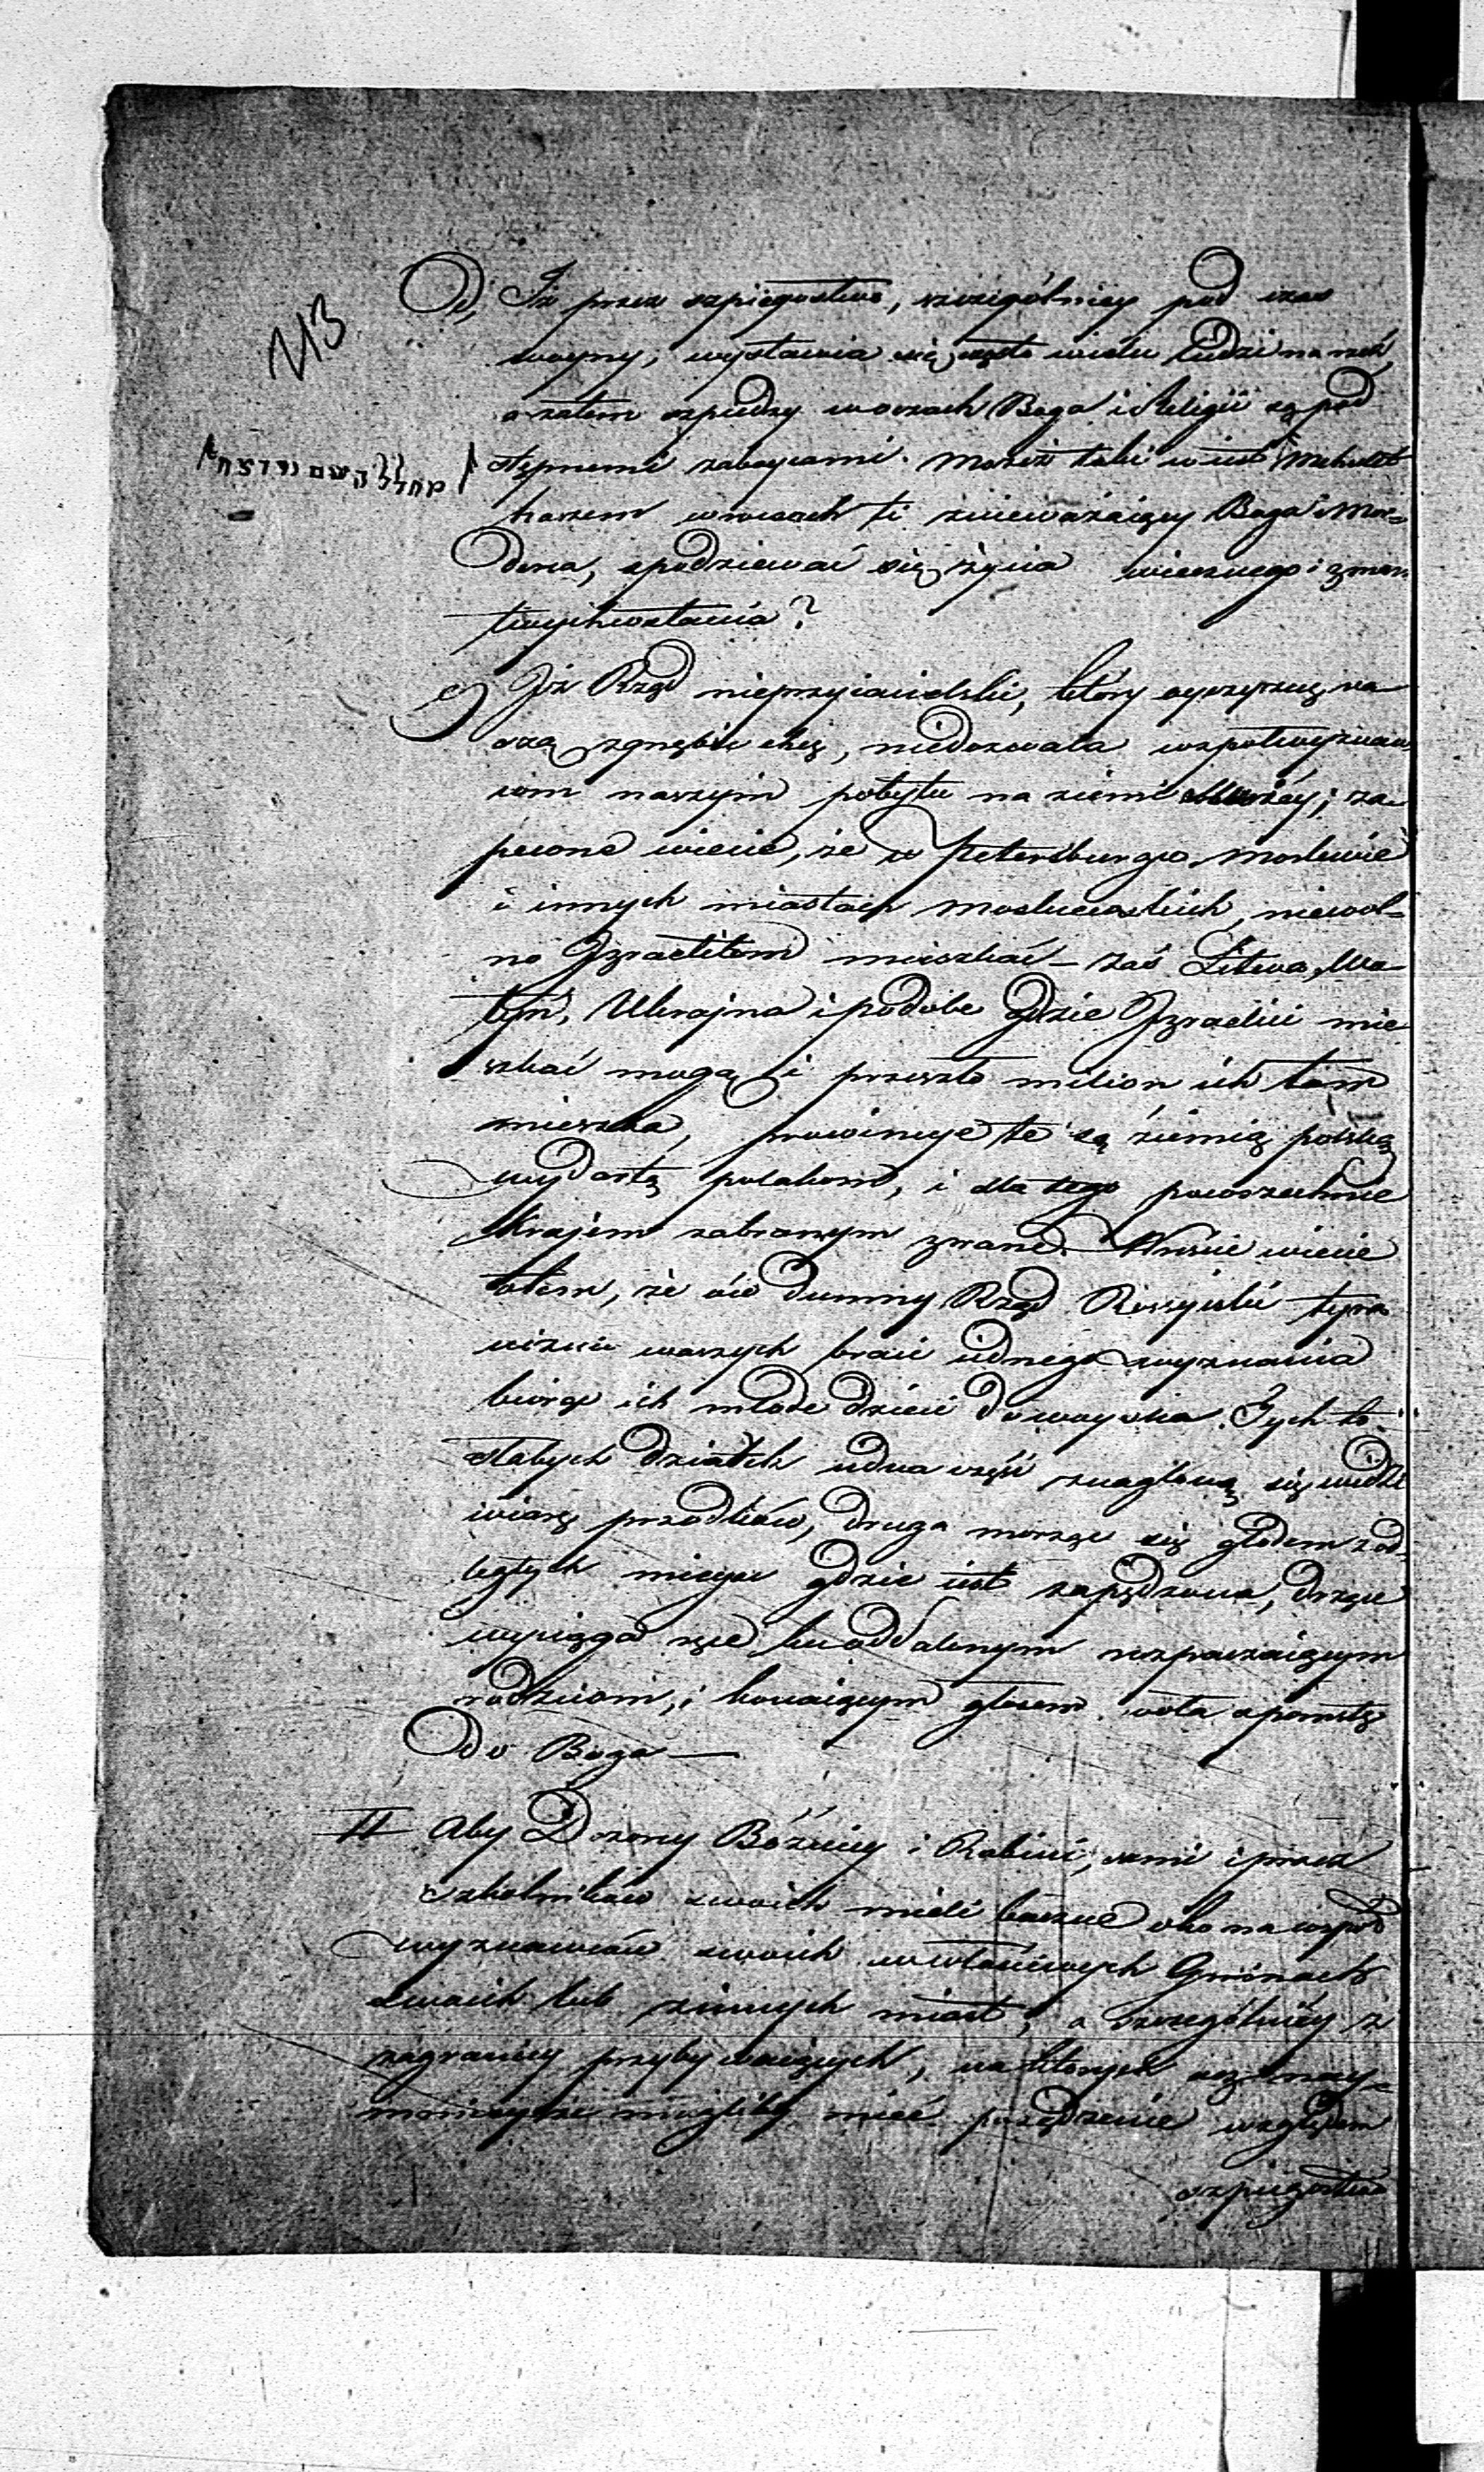 213
d, Iż przez szpiegostwo, szczególniey pod czas
woyny, wystawia się często wielu ludzi na rzeź,
a zatem szpiedzy w oczach Boga i Religii są pod
stępnemi zaboycami. Możeż taki wiest Mechalel
מחלל השם ורוצח
haszem werocech ti znieważaiący Boga i Mor-
derca, spodziewać się życia wiecznego i zmar-
twychwstania?
e) Iż Rząd nieprzyiacielski, który oyczyznę na-
szą zgnębić chce, niedozwala współwyznaw
com naszym pobytu na ziemi swoiéy; za-
pewne wiecie, że w Petersburgu, Moskwie
i innych miastach Moskiewskich, niewol-
no Izraelitom mieszkać – zaś Litwa, Wo-
łyń, Ukrajna i Podole gdzie Izraelici mie
szkać mogą i przeszło milion ich tam
mieszka, prowincye te są ziemią polską
wydartą polakom, i dla tego powszechnie
Krajem zabranym zwane. Wreście wiecie
o tem, że ów dumny Rząd Rossyiski tyra
nizuie waszych braci iednego wyznania
biorąc ich młode dzieci do woyska. Tych to
słabych dziatek iedna część znaglona się widzi
wiarę przodków, druga morząc się głodem z od-
ległych mieysc gdzie iest zapędzona, drżące
wyciąga ręce ku oddalonym rozpaczaiącym
rodzicom, i konaiącym głosem woła o pomstę
do Boga —
II Aby Dozory Bóżnicy i Rabini, sami i przez
szkolników swoich mieli baczne oko na współ
wyznawców swoich w właściwych Gminach
swoich lub z innych miast, a szczególniéy z
zagranicy przybywaiących, na których
mnieysze mogliby mieć posądzenie względem
szpiegostwa